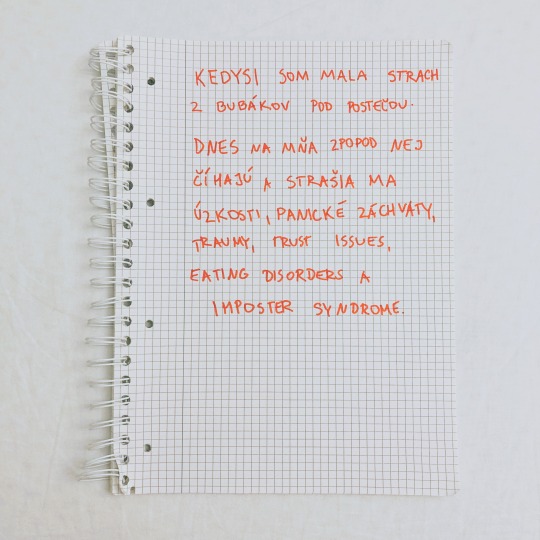 KEDYSI SOM MALA STRACH
Z BUBÁKOV POD POSTEĽOU.
DNES NA MŇA ZPOPOD NEJ
ČÍHAJÚ A STRAŠIA MA
ÚZKOSTI, PANICKÉ ZÁCHVATY,
TRAUMY, TRUST ISSUES,
EATING DISORDERS A
IMPOSTER SYNDROME.